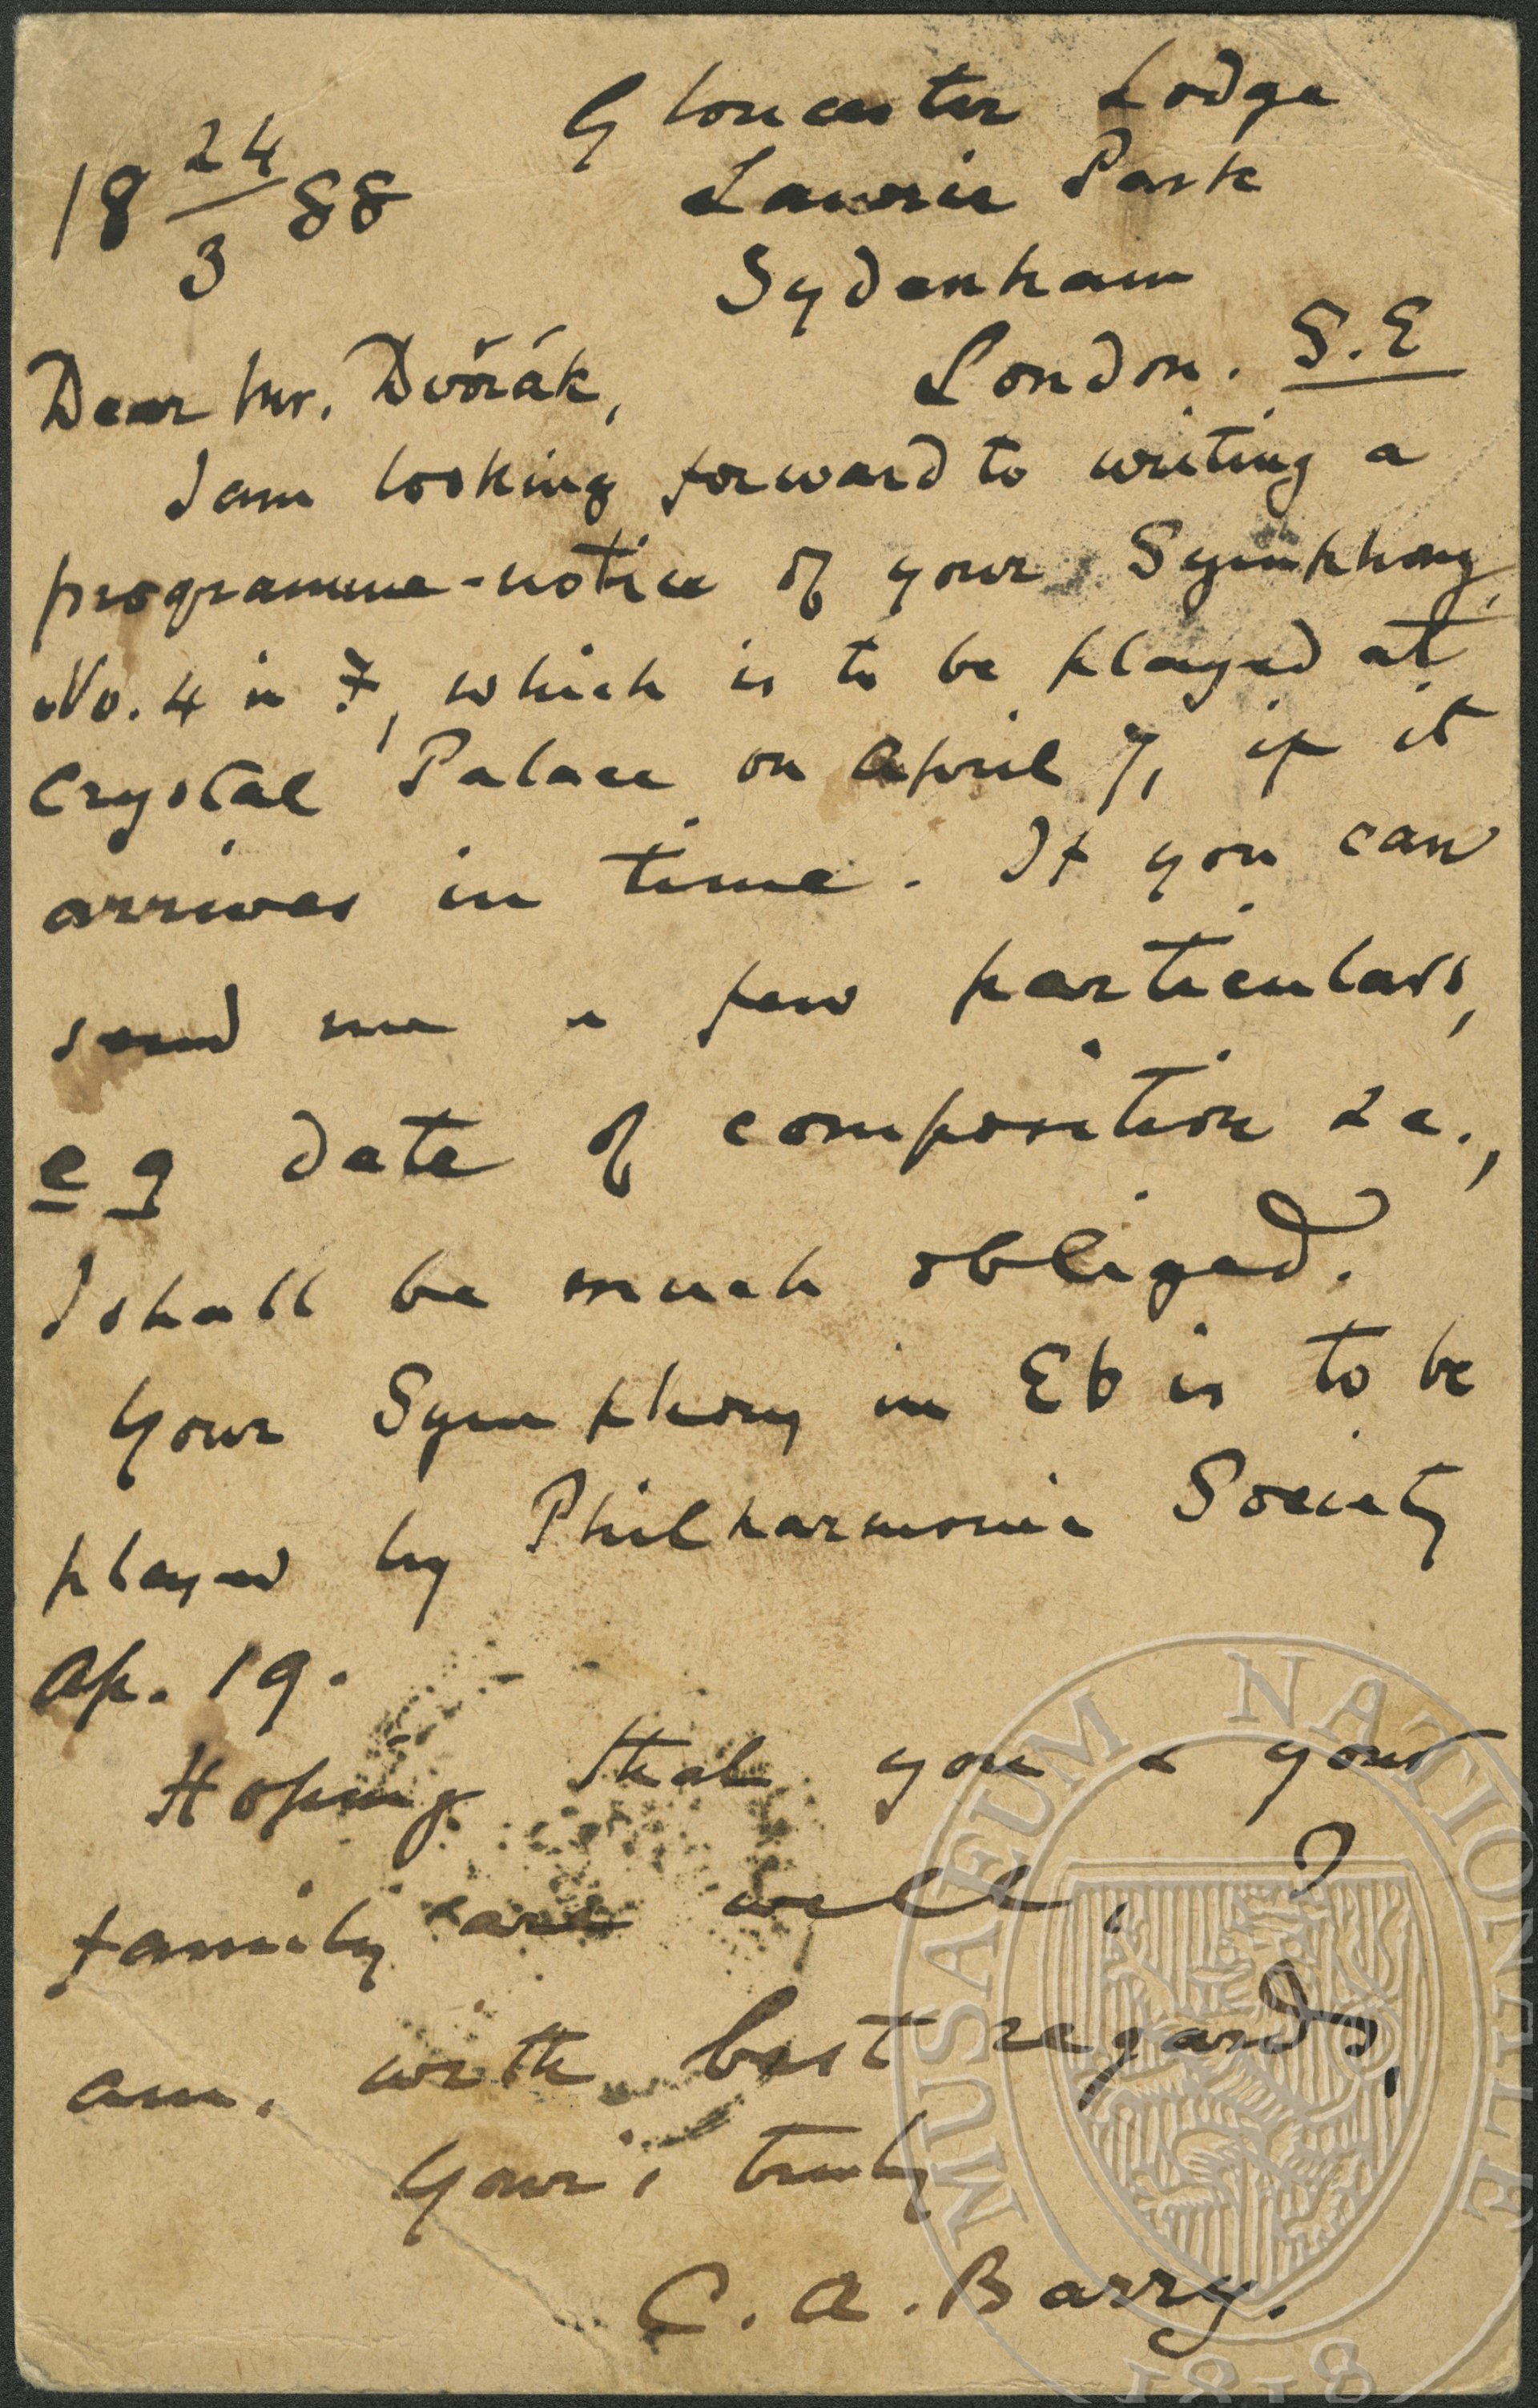 Gloucester Lodge
18 24/3 88
Lawrie Park
Sydenham
London. S.E
Dear Mr. Dvořák,
I am looking forward to writing a
programme-notice of your Symphony,
No. 4 in F, which is to be played at
Crystal Palace on April 7, if it
arrives in time. If you can
send me a few particulars,
eg date of composition &c.,
I shall be much obliged.
Your Symphony in E♭ is to be
played by Philharmonic Society
Ap. 19.
Hoping that you & your
family are well, I
am, with best regards,
Yours truly
C. A. Barry.
MUSAEUM NATIONALE
1818